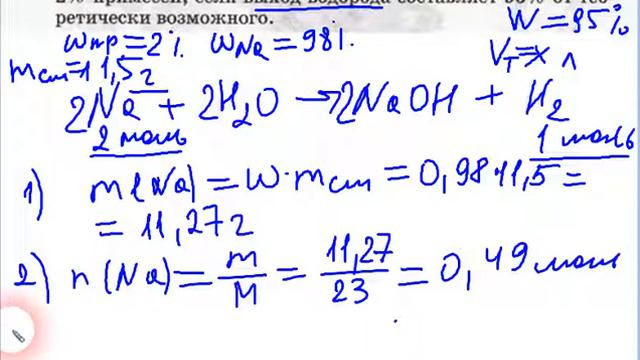 2% примесей, если выход водорода составляет 95% от тео-
ретически возможного.
W = 95%
wпр = 2%. wNa = 98%.
Vт = x л
mсм = 11,5г
2Na + 2H₂O → 2NaOH + H₂
2 моль 1 моль
1) m(Na) = W · mсм = 0,98·11,5 =
= 11,27г
2) n(Na) = m/M = 11,27/23 = 0,49моль